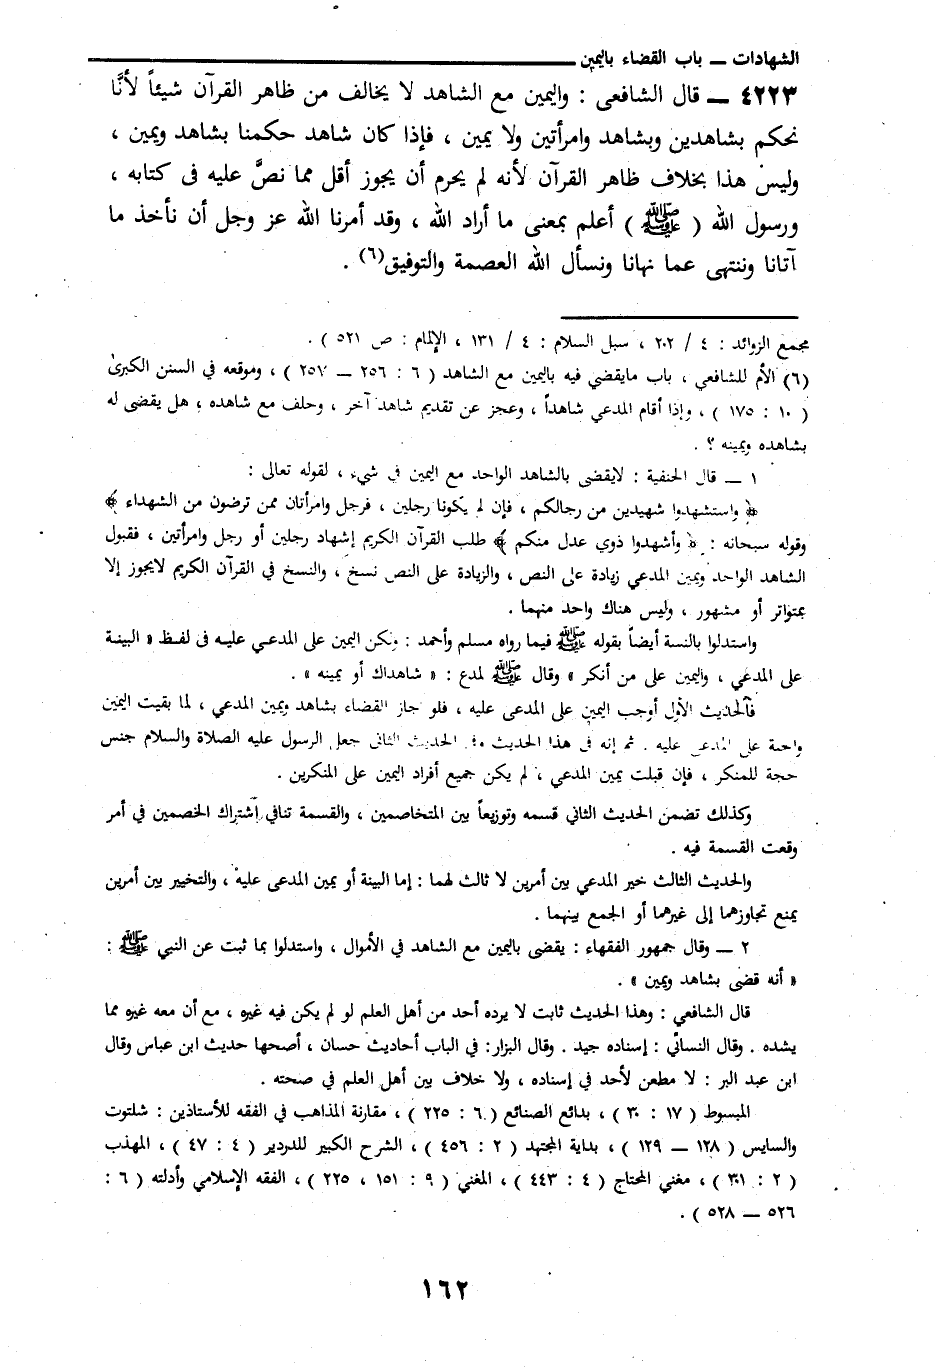 الشهادات ــ باب القضاء باليمين
٤٢٢٣ ــ قال الشافعى : واليمين مع الشاهد لا يخالف من ظاهر القرآن شيئاً لأنَّا
نحكم بشاهدين وبشاهد وامرأتين ولا يمين ، فإذا كان شاهد حكمنا بشاهد ويمين ،
وليس هذا بخلاف ظاهر القرآن لأنه لم يحرم أن يجوز أقل مما نصَّ عليه فى كتابه ،
ورسول الله ( ﷺ ) أعلم بمعنى ما أراد الله ، وقد أمرنا الله عز وجل أن نأخذ ما
آتانا وننتهى عما نهانا ونسأل الله العصمة والتوفيق(٦) .
مجمع الزوائد : ٤ / ٢٠٢ ، سبل السلام : ٤ / ١٣١ ، الإلمام : ص ٥٢١ ) .
(٦) الأم للشافعي ، باب مايقضي فيه باليمين مع الشاهد ( ٦ : ٢٥٦ ــ ٢٥٧ ) ، وموقعه في السنن الكبرىٰ
( ١٠ : ١٧٥ ) ، وإذا أقام المدعي شاهداً ، وعجز عن تقديم شاهد آخر ، وحلف مع شاهده ، هل يقضى له
بشاهده ويمينه ؟ .
١ ــ قال الحنفية : لايقضى بالشاهد الواحد مع اليمين في شيء ، لقوله تعالى :
﴿ واستشهدوا شهيدين من رجالكم ، فإن لم يكونا رجلين ، فرجل وامرأتان ممن ترضون من الشهداء ﴾
وقوله سبحانه : ﴿ وأشهدوا ذوي عدل منكم ﴾ طلب القرآن الكريم إشهاد رجلين أو رجل وامرأتين ، فقبول
الشاهد الواحد ويمين المدعي زيادة على النص ، والزيادة على النص نسخ ، والنسخ في القرآن الكريم لايجوز إلا
بمتواتر أو مشهور ، وليس هناك واحد منهما .
واستدلوا بالنسة أيضاً بقوله ﷺ فيما رواه مسلم وأحمد : ولكن اليمين على المدعى عليه فى لفظ « البينة
على المدعي ، واليمين على من أنكر » وقال ﷺ لمدع : « شاهداك أو يمينه » .
فالحديث الأول أوجب اليمين على المدعى عليه ، فلو جاز القضاء بشاهد ويمين المدعي ، لما بقيت اليمين
واجبة على المدعى عليه . ثم إنه فى هذا الحديث وفى الحديث الثانى جعل الرسول عليه الصلاة والسلام جنس
حجة للمنكر ، فإن قبلت يمين المدعي ، لم يكن جميع أفراد اليمين على المنكرين .
وكذلك تضمن الحديث الثاني قسمه وتوزيعاً بين المتخاصمين ، والقسمة تنافي إشتراك الخصمين في أمر
وقعت القسمة فيه .
والحديث الثالث خير المدعي بين أمرين لا ثالث لهما : إما البينة أو يمين المدعى عليه ، والتخيير بين أمرين
يمنع تجاوزهما إلى غيرهما أو الجمع بينهما .
٢ ــ وقال جمهور الفقهاء : يقضى باليمين مع الشاهد في الأموال ، واستدلوا بما ثبت عن النبي ﷺ :
« أنه قضى بشاهد ويمين » .
قال الشافعي : وهذا الحديث ثابت لا يرده أحد من أهل العلم لو لم يكن فيه غيره ، مع أن معه غيره مما
يشده . وقال النسائي : إسناده جيد . وقال البزار: في الباب أحاديث حسان ، أصحها حديث ابن عباس وقال
ابن عبد البر : لا مطعن لأحد في إسناده ، ولا خلاف بين أهل العلم في صحته .
المبسوط ( ١٧ : ٣٠ ) ، بدائع الصنائع ( ٦ : ٢٢٥ ) ، مقارنة المذاهب في الفقه للأستاذين : شلتوت
والسايس ( ١٢٨ ــ ١٢٩ ) ، بداية المجتهد ( ٢ : ٤٥٦ ) ، الشرح الكبير للدردير ( ٤ : ٤٧ ) ، المهذب
( ٢ : ٣٠١ ) ، مغني المحتاج ( ٤ : ٤٤٣ ) ، المغني ( ٩ : ١٥١ ، ٢٢٥ ) ، الفقه الإسلامي وأدلته ( ٦ :
٥٢٦ ــ ٥٢٨ ) .
١٦٢